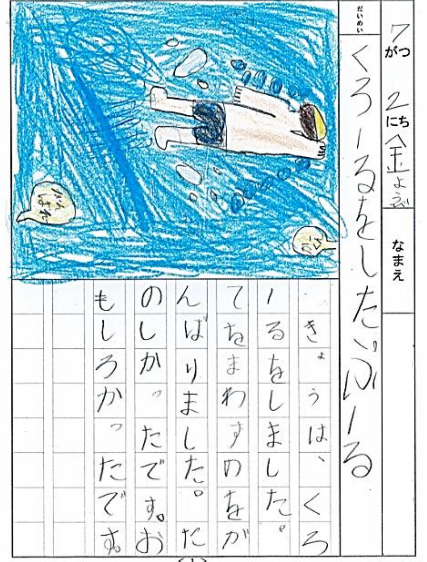 7がつ2にち金ようび
なまえ
だいめい
くろーるをしたぷーる
きょうは、くろ
ーるをしました。
てをまわすのをが
んばりました。た
のしかったです。お
もしろかったです。